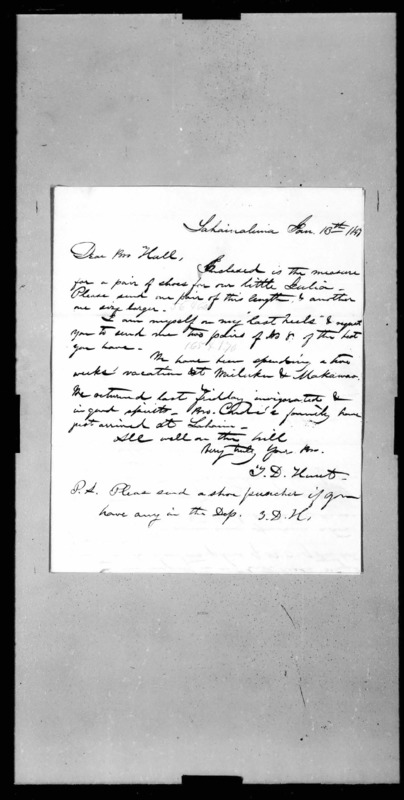 Lahainaluna Jan. 10th /49
Dear Bro Hall,
Enclosed is the measure
for a pair of shoes for our little Julia-
Please send one pair of this length & another
one size larger.
I am myself on my "last heels" & request
you to send me two pairs of No 8 of the best
you have.
We have been spending a two
weeks vacation at Wailuku & Makawao.
We returned last Friday invigorated &
in good spirits- Bro. family have
just arrived at Lahaina-
All well on the hill
Very truly Your Bro.
T. D. Hunt-
P.S. Please send a shoe if you
have any in the Dep. T. D. H.